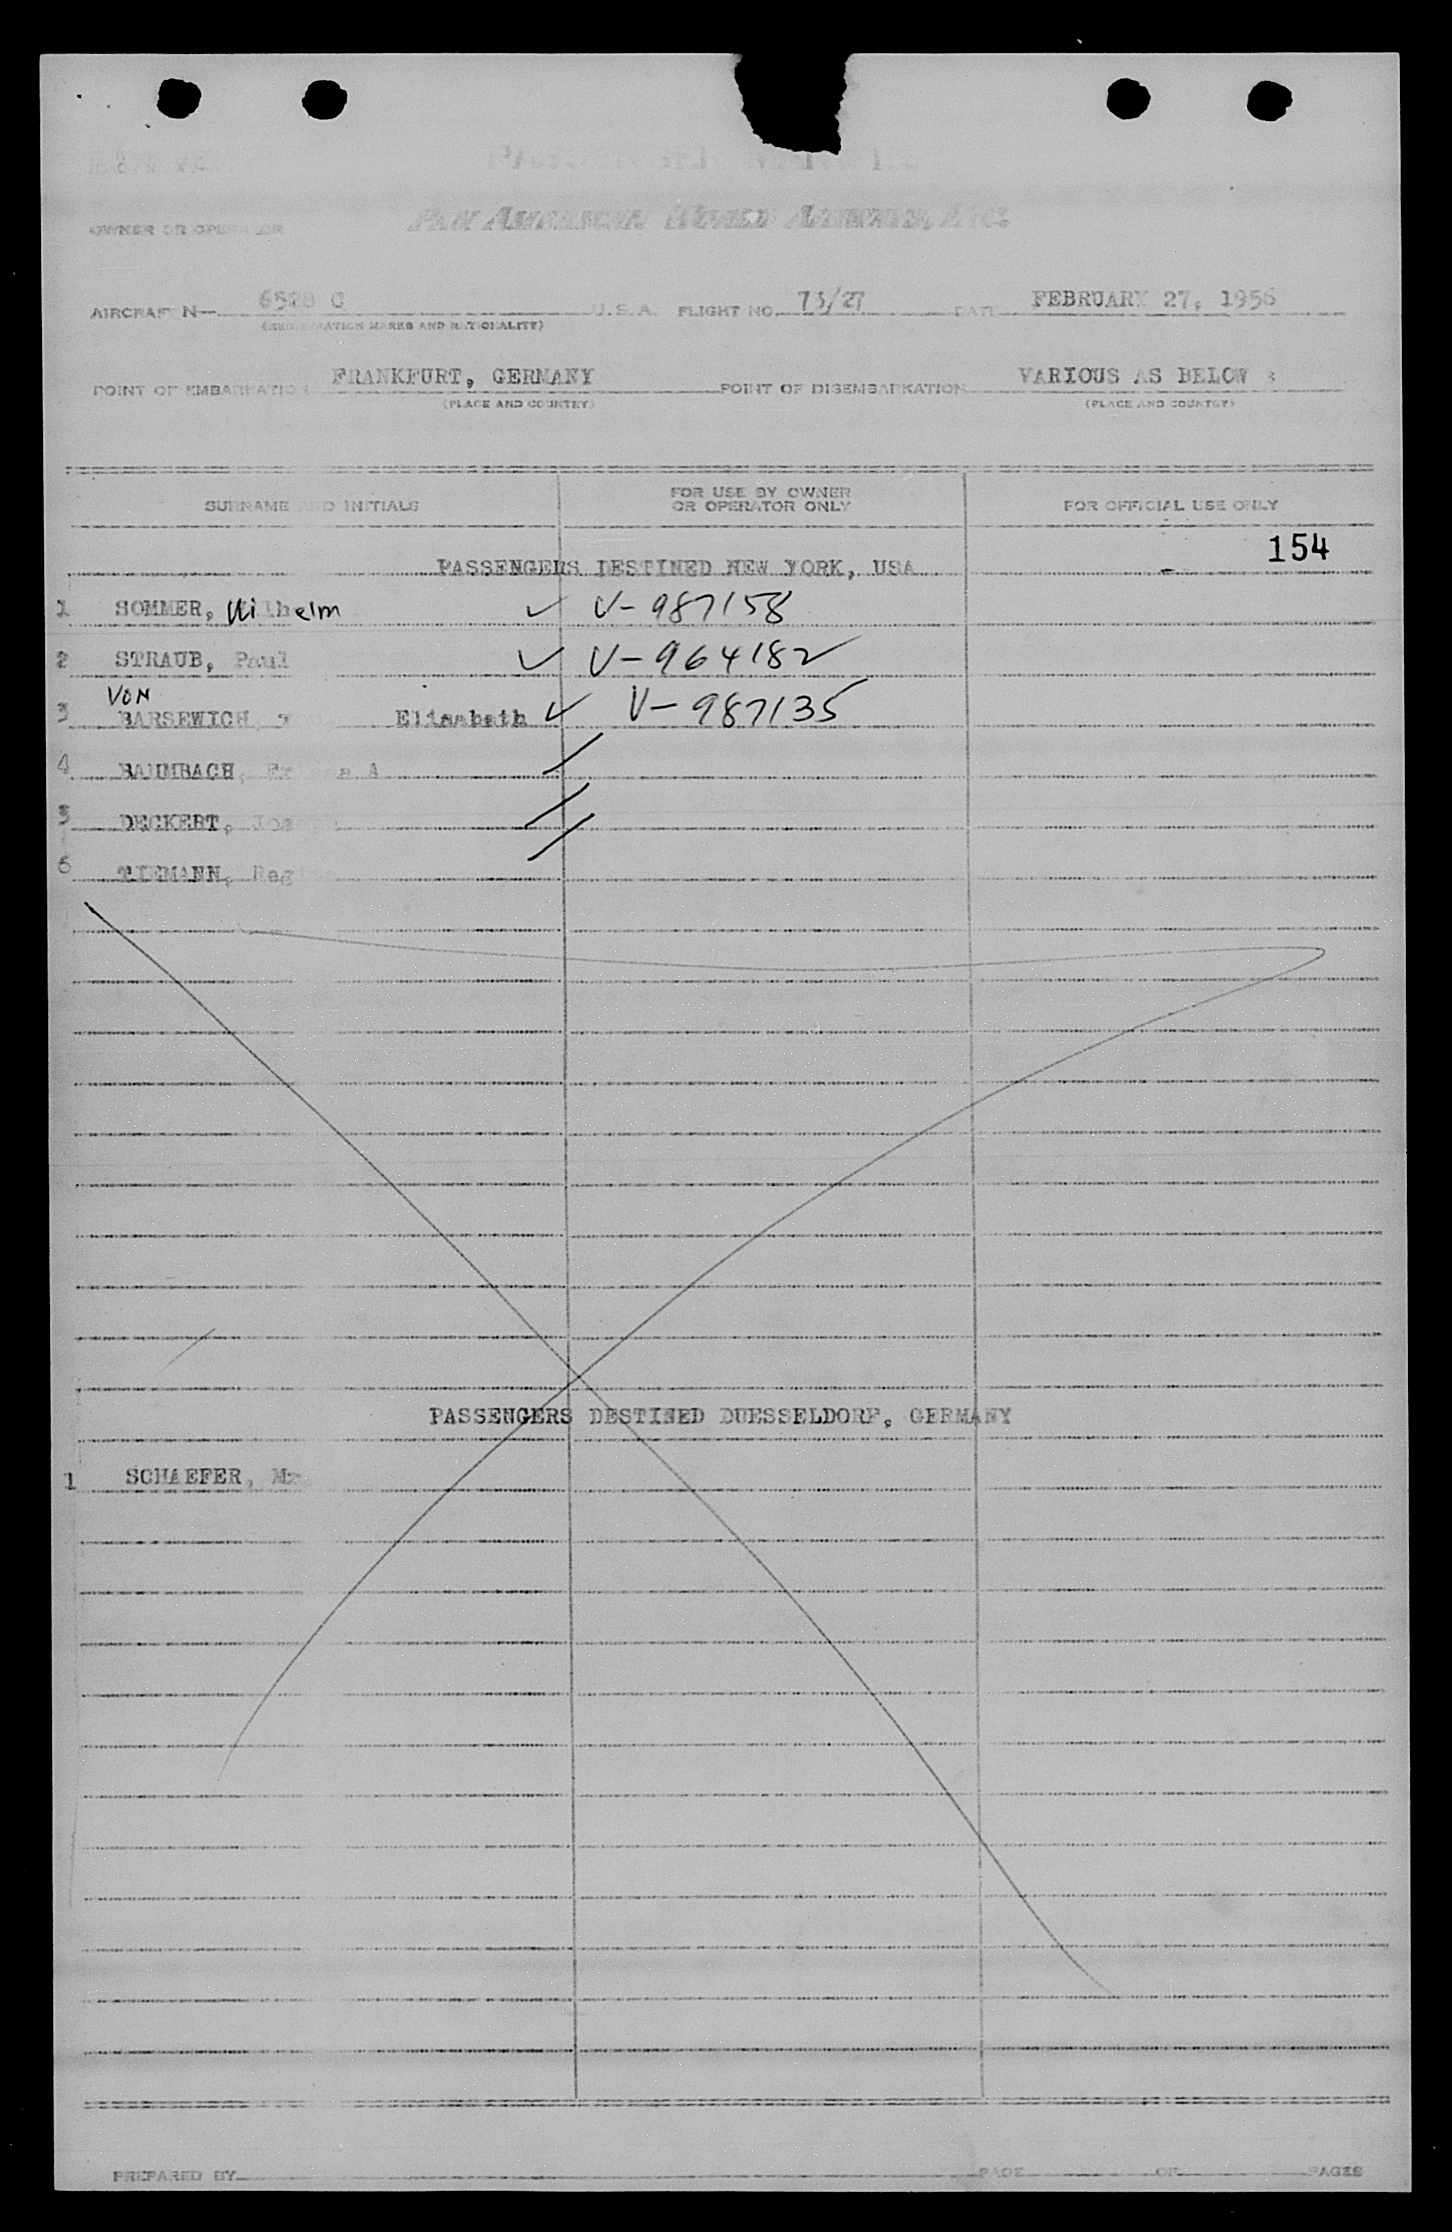 PAN AMERICAN WORLD AIRWAYS, INC.
OWNER OR OPERATOR
AIRCRAFT N— 6528 C U.S.A. FLIGHT NO. 73/27 DATE FEBRUARY 27, 1956
(REGISTRATION MARKS AND NATIONALITY)
POINT OF EMBARKATION FRANKFURT, GERMANY POINT OF DISEMBARKATION VARIOUS AS BELOW :
(PLACE AND COUNTRY) (PLACE AND COUNTRY)
SURNAME AND INITIALS FOR USE BY OWNER OR OPERATOR ONLY FOR OFFICIAL USE ONLY
154
PASSENGERS DESTINED NEW YORK, USA
1 SOMMER, Wilhelm ✓ V-987158
2 STRAUB, Paul ✓ V-964182
VON
3 BARSEWICH, Elisabeth ✓ V-987135
4 BAUMBACH, A
5 DECKERT,
6 TIEMANN,
PASSENGERS DESTINED DUESSELDORF, GERMANY
1 SCHAEFER,
PREPARED BY PAGE OF PAGES